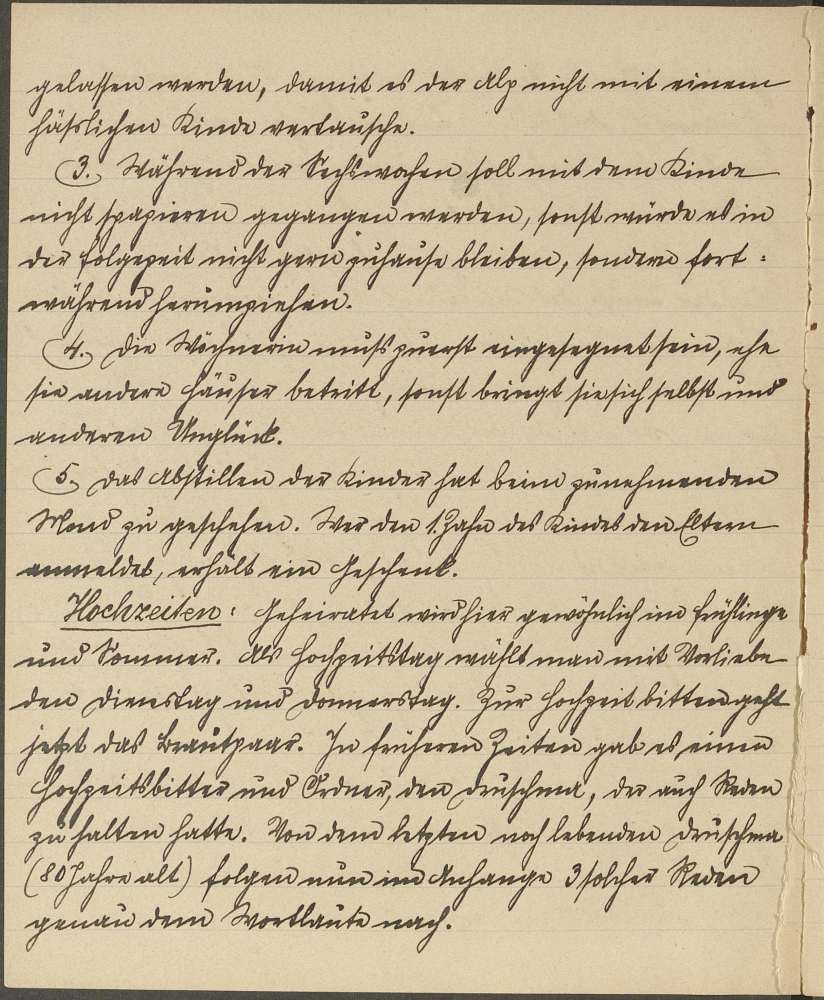 gelassen werden, damit es der Alp nicht mit einem
häßlichen Kinde vertausche.
3. Während der Sechswochen soll mit dem Kinde
nicht spazieren gegangen werden, sonst würde es in
der Folgezeit nicht gern zuhause bleiben, sondern fort-
während herumziehen.
4. Die Wöchnerin muß zuerst eingesegnet sein, ehe
sie andere Häuser betritt, sonst bringt sie sich selbst und
anderen Unglück.
5. Das Abstillen der Kinder hat beim zunehmenden
Mond zu geschehen. Wer den 1. Zahn des Kindes den Eltern
anmeldet, erhält ein Geschenk.
Hochzeiten: Geheiratet wird hier gewöhnlich im Frühlinge
und Sommer. Als Hochzeitstag wählt man mit Vorliebe
den Dienstag und Donnerstag. Zur Hochzeit bitten geht
jetzt das Brautpaar. In früheren Zeiten gab es einen
Hochzeitsbitter und Ordner, den Druschma, der auch Reden
zu halten hatte. Von dem letzten noch lebenden Druschma
(80 Jahre alt) folgen nun im Anhange 3 solcher Reden
genau dem Wortlaute nach.